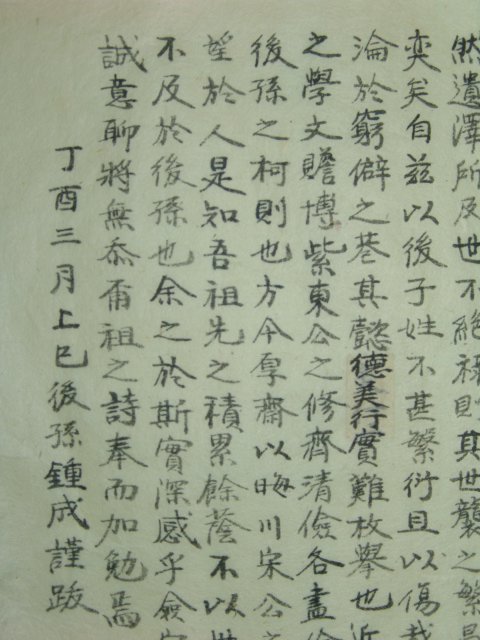 然遺澤所及世不絶祿則其世襲之繁
奕矣自玆以後子姓不甚繁衍且以傷哉
淪於窮僻之巷其懿德美行實難枚擧也近
之學文贍博紫東公之修齊清儉各盡
後孫之柯則也方今厚齋以晦川宋公之
望於人是知吾祖先之積累餘蔭不以世
不及於後孫也余之於斯實深感乎僉
誠意聊將無忝甭祖之詩奉而加勉焉
丁酉三月上巳後孫鍾成謹跋